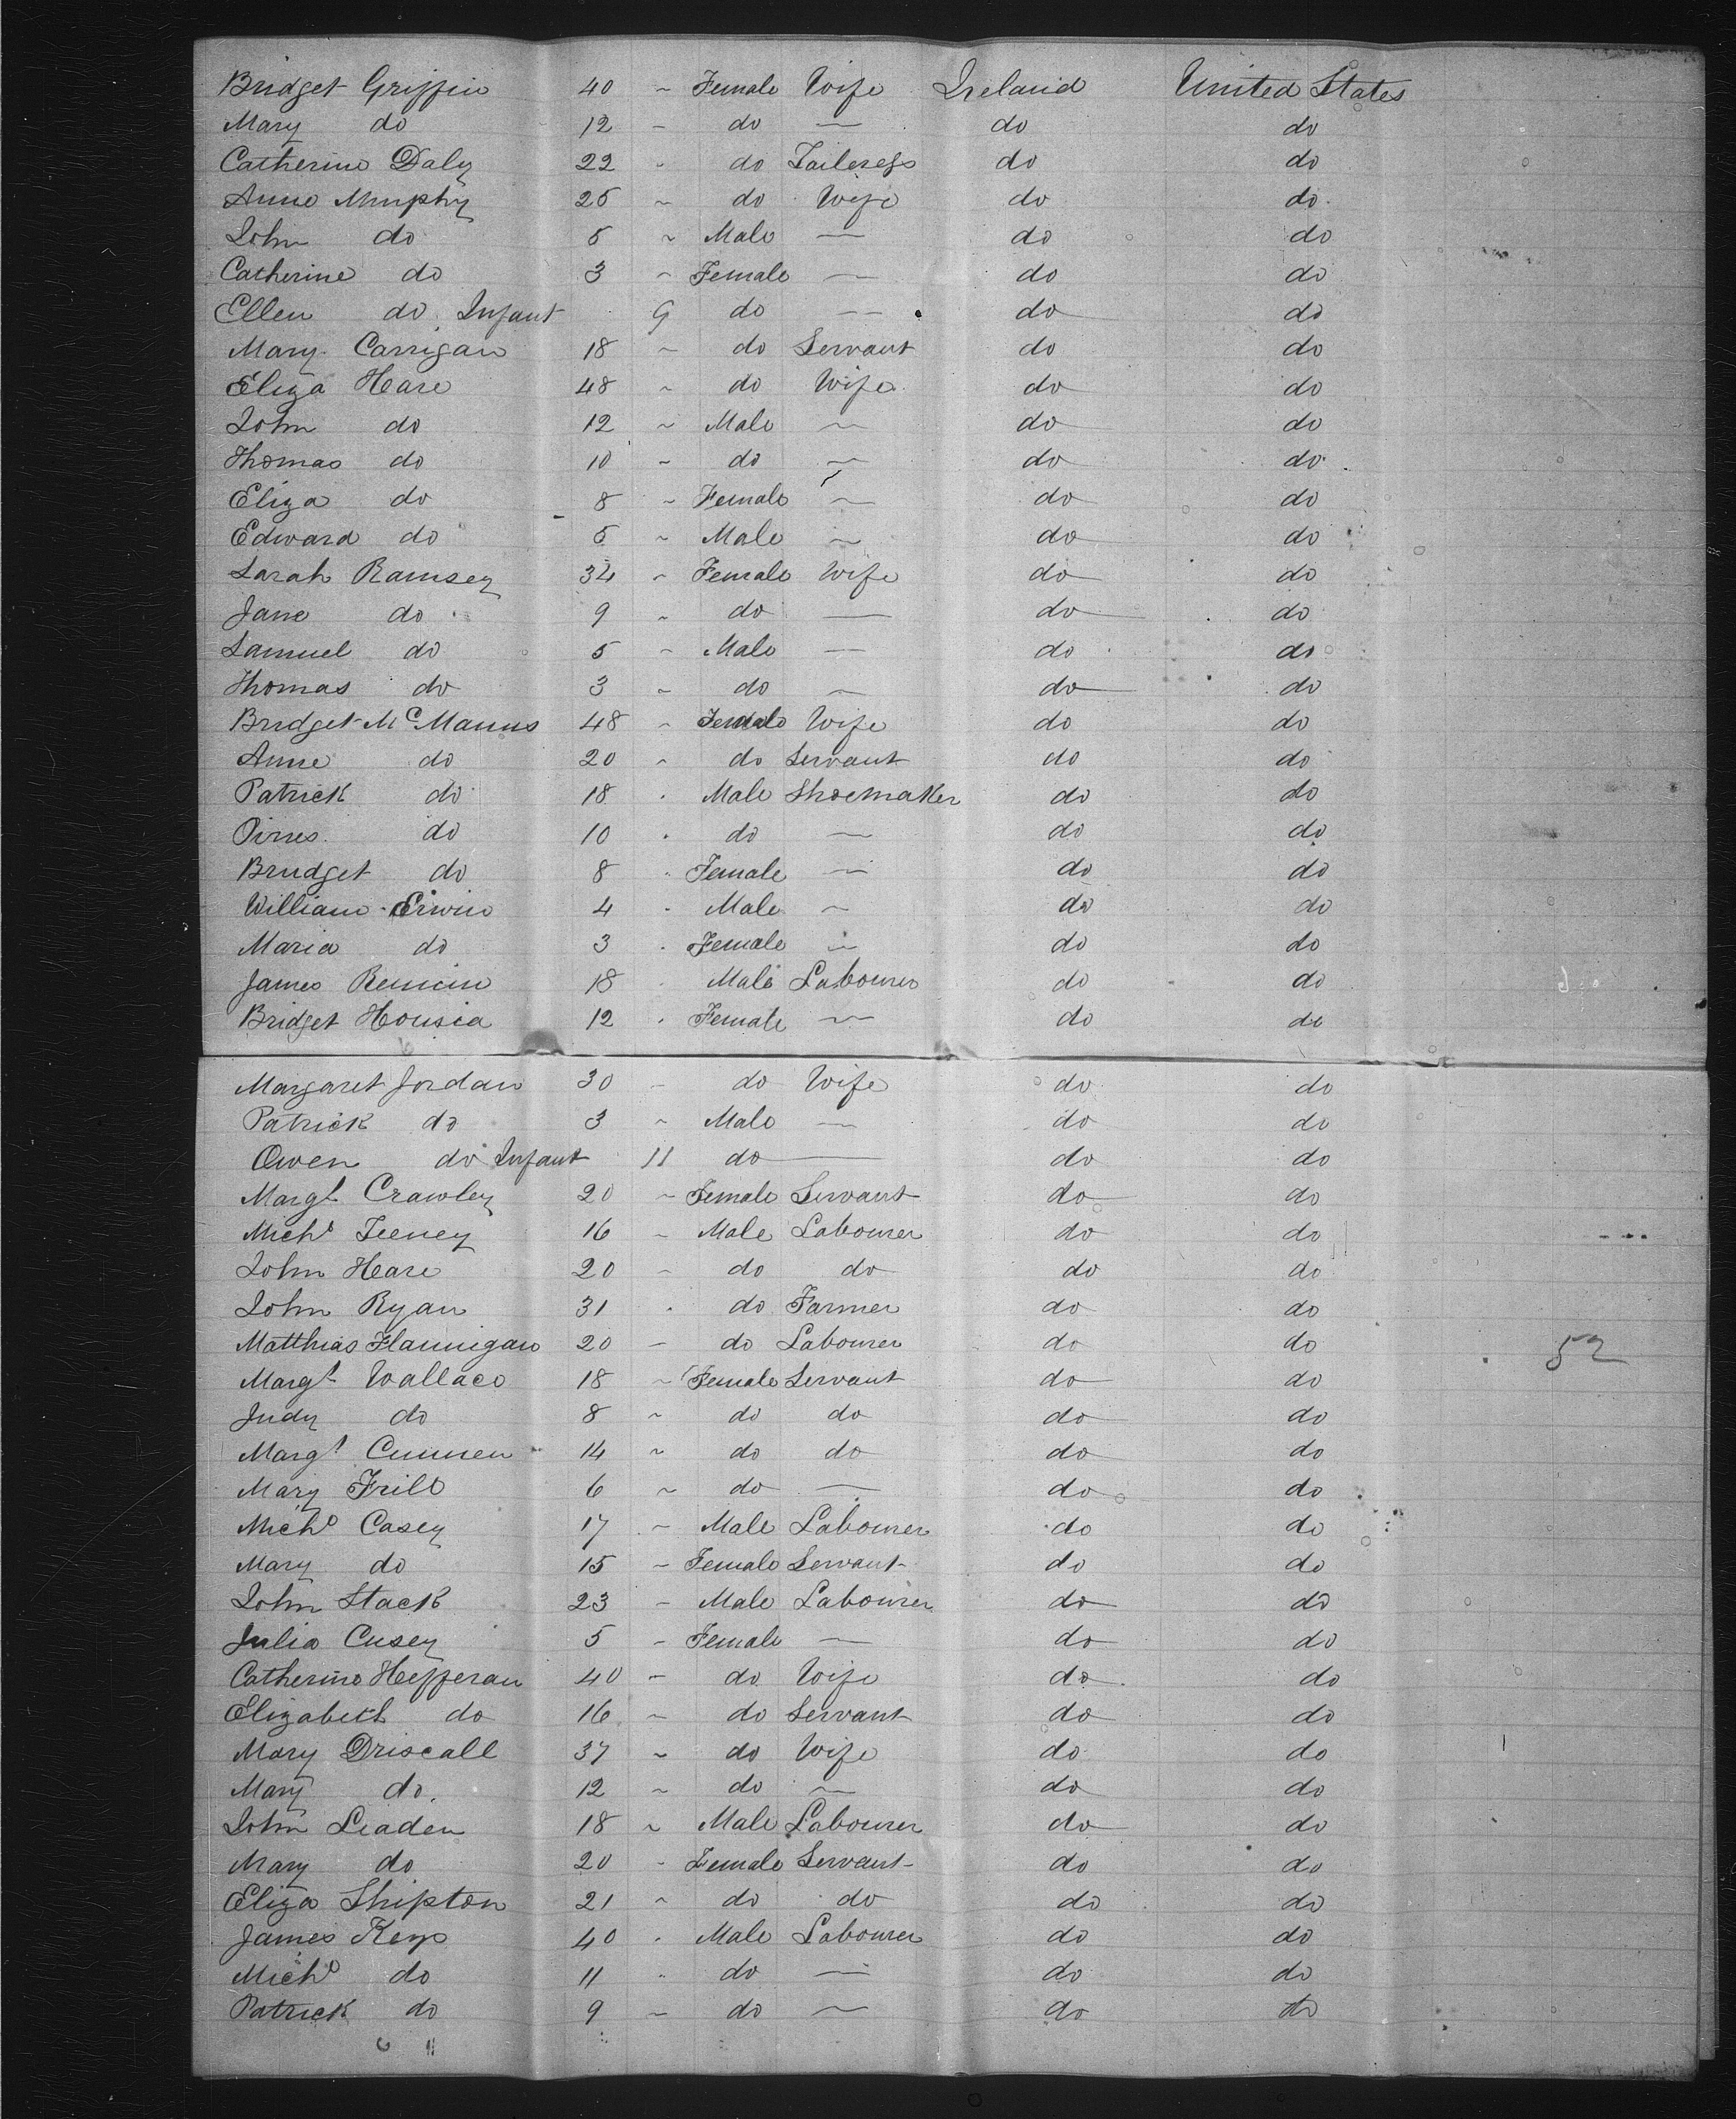 Bridget Griffin 40 ~ Female Wife Ireland United States
Mary do 12 - do — do do
Catherine Daly 22 - do Taileress do do
Anne Murphy 25 ~ do Wife do do
John do 5 ~ Male — do do
Catherine do 3 ~ Female — do do
Ellen do Infant 9 do — do do
Mary Carrigan 18 ~ do Servant do do
Eliza Hare 48 ~ do Wife do do
John do 12 ~ Male ~ do do
Thomas do 10 ~ do ~ do do
Eliza do 8 ~ Female ~ do do
Edward do 5 ~ Male ~ do do
Sarah Ramsey 34 ~ Female Wife do do
Jane do 9 ~ do — do do
Samuel do 5 ~ Male — do do
Thomas do 3 ~ do ~ do do
Bridget McManus 48 ~ Female Wife do do
Anne do 20 ~ do Servant do do
Patrick do 18 . Male Shoemaker do do
do 10 . do — do do
Brudget do 8 . Female — do do
William Erwin 4 . Male ~ do do
Maria do 3 . Female ~ do do
James 18 . Male Labourer do do
Bridget 12 . Female — do do
Margaret Jordan 30 — do Wife do do
Patrick do 3 ~ Male — do do
Owen do Infant 11 do — do do
Margt Crawley 20 ~ Female Servant do do
Michl Feeney 16 ~ Male Labourer do do
John Hare 20 ~ do do do do
John Ryan 31 . do Farmer do do
Matthias Flannigan 20 — do Labourer do do 52
Margt Wallace 18 ~ Female Servant do do
Judy do 8 ~ do do do do
Margt Cunnen 14 ~ do do do do
Mary Frill 6 ~ do — do do
Michl Casey 17 ~ Male Labourer do do
Mary do 15 ~ Female Servant do do
John Stack 23 — Male Labourer do do
Julia Cusey 5 — Female — do do
Catherine Hefferan 40 — do Wife do do
Elizabeth do 16 ~ do Servant do do
Mary Driscall 37 ~ do Wife do do
Mary do. 12 ~ do ~ do do
John Leaden 18 ~ Male Labourer do do
Mary do 20 ~ Female Servant do do
Eliza Shipton 21 ~ do do do do
James Keys 40 . Male Labourer do do
Michl do 11 . do — do do
Patrick do 9 ~ do ~ do do